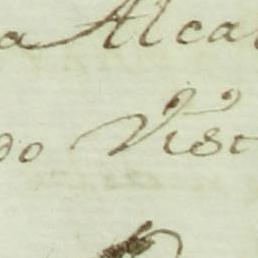 a Alca
do Vist